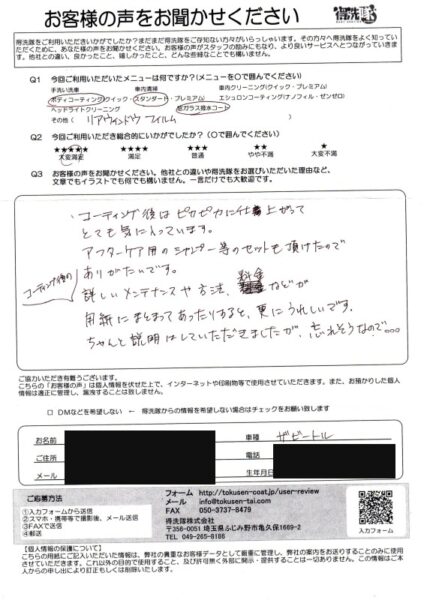 お客様の声をお聞かせください
得洗隊
得洗隊をご利用いただきいかがでしたか？まだまだ得洗隊をご存じない方々がいらっしゃいます。その方々へ得洗隊をよく知っていただくために、あなた様の声をお聞かせください。お客様の声がスタッフの励みにもなり、より良いサービスへとつながっていきます。他社との違い、良かったこと、嬉しかったこと、どんな些細なことでも構いません。
Q1 今回ご利用いただいたメニューは何ですか？(メニューを○で囲んでください)
手洗い洗車 車内清掃 車内クリーニング(クイック・プレミアム)
ボディコーティング(クイック・スタンダード・プレミアム) エシュロンコーティング(ナノフィル・ゼンゼロ)
ヘッドライトクリーニング 窓ガラス撥水コート
その他 ( リアウィンドウ フィルム )
Q2 今回ご利用いただき総合的にいかがでしたか？ (○で囲んでください)
★★★★★ ★★★★ ★★★ ★★ ★
大変満足 満足 普通 やや不満 大変不満
Q3 お客様の声をお聞かせください。他社との違いや得洗隊をお選びいただいた理由など、
文章でもイラストでも何でも構いません。一言だけでも大歓迎です。
コーティング後はピカピカに仕上がって
とても気に入っています。
アフターケア用のシャンプー等のセットも頂けたので
ありがたいです。
コーティング後の
詳しいメンテナンスや方法、料金などが
用紙にまとまってあったりすると、更にうれしいです。
ちゃんと説明はしていただきましたが、忘れそうなので...
ご協力いただき有難うございます。
こちらの「お客様の声」は個人情報を伏せた上で、インターネットや印刷物等で使用させていただきます。また、お預かりした個人情報は適正に管理し、漏洩することは致しません。
□ DMなどを希望しない ← 得洗隊からの情報を希望しない場合はチェックをお願い致します
お名前 車種 ザビートル
ご住所 電話
メール 生年月日
ご応募方法
①入力フォームから送信
②スマホ・携帯等で撮影後、メール送信
③FAXで送信
④郵送
フォーム http://tokusen-coat.jp/user-review
メール info@tokusen-tai.com
FAX 050-3737-8479
得洗隊株式会社
〒356-0051 埼玉県ふじみ野市亀久保1669-2
TEL 049-265-8186
入力フォーム
【個人情報の保護について】
こちらの用紙にご記入いただいた情報は、弊社の貴重なお客様データとして厳重に管理し、弊社の案内をお送りすることのみに使用させていただきます。これ以外の目的で使用すること、及び許可無く外部に開示・提供することは一切ありません。この情報はご本人からの申し出により訂正もしくは削除いたします。